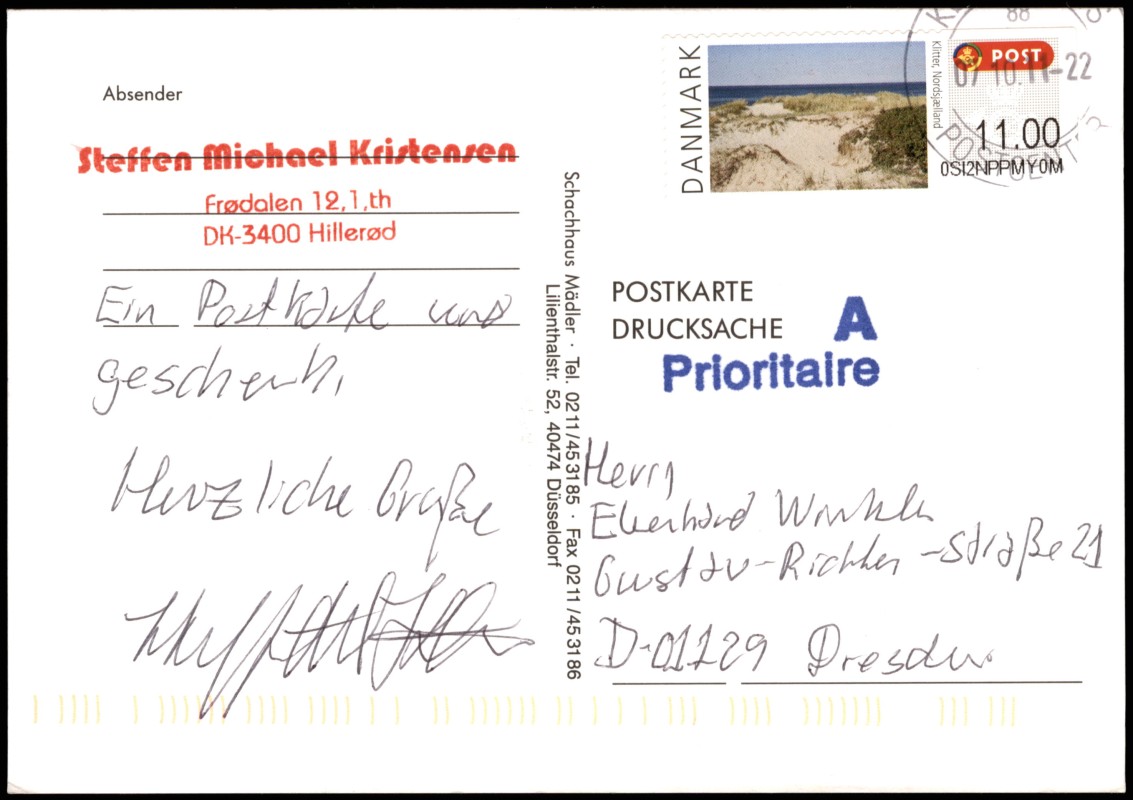 Absender
Steffen Michael Kristensen
Frødalen 12,1,th
DK-3400 Hillerød
Ein Postkarte und
geschenk,
Herzliche Grüße
Schachhaus Mädler · Tel. 0211/453185 · Fax 0211/453186
Lilienthalstr. 52, 40474 Düsseldorf
DANMARK
Klitter, Nordsjælland
POST
07.10.11-22
11.00
0SI2NPPMY0M
88
POSTCENTER
POSTKARTE
DRUCKSACHE
A
Prioritaire
Herrn
Eberhard Winkler
Gustav-Richter-straße 21
D-01129 Dresden